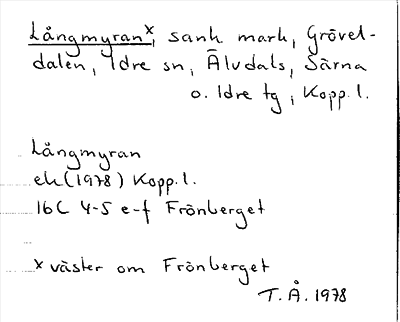 Långmyranˣ, sank mark, Grövel-
dalen, Idre sn, Älvdals, Särna
o. Idre tg, Kopp. l.
Långmyran
ek (1978) Kopp. l.
16C 4-5 e-f Frönberget
x väster om Frönberget
T. Å. 1978